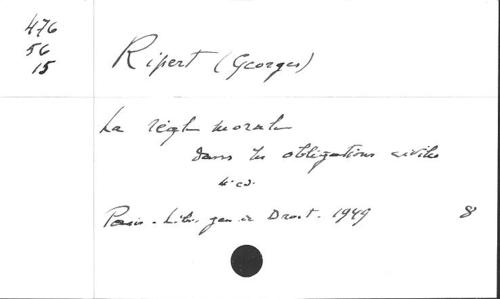 476
56
15
Ripert (Georges)
La règle morale
dans les obligations civiles
4e éd.
Paris. Libr. gen. de Droit. 1949 8